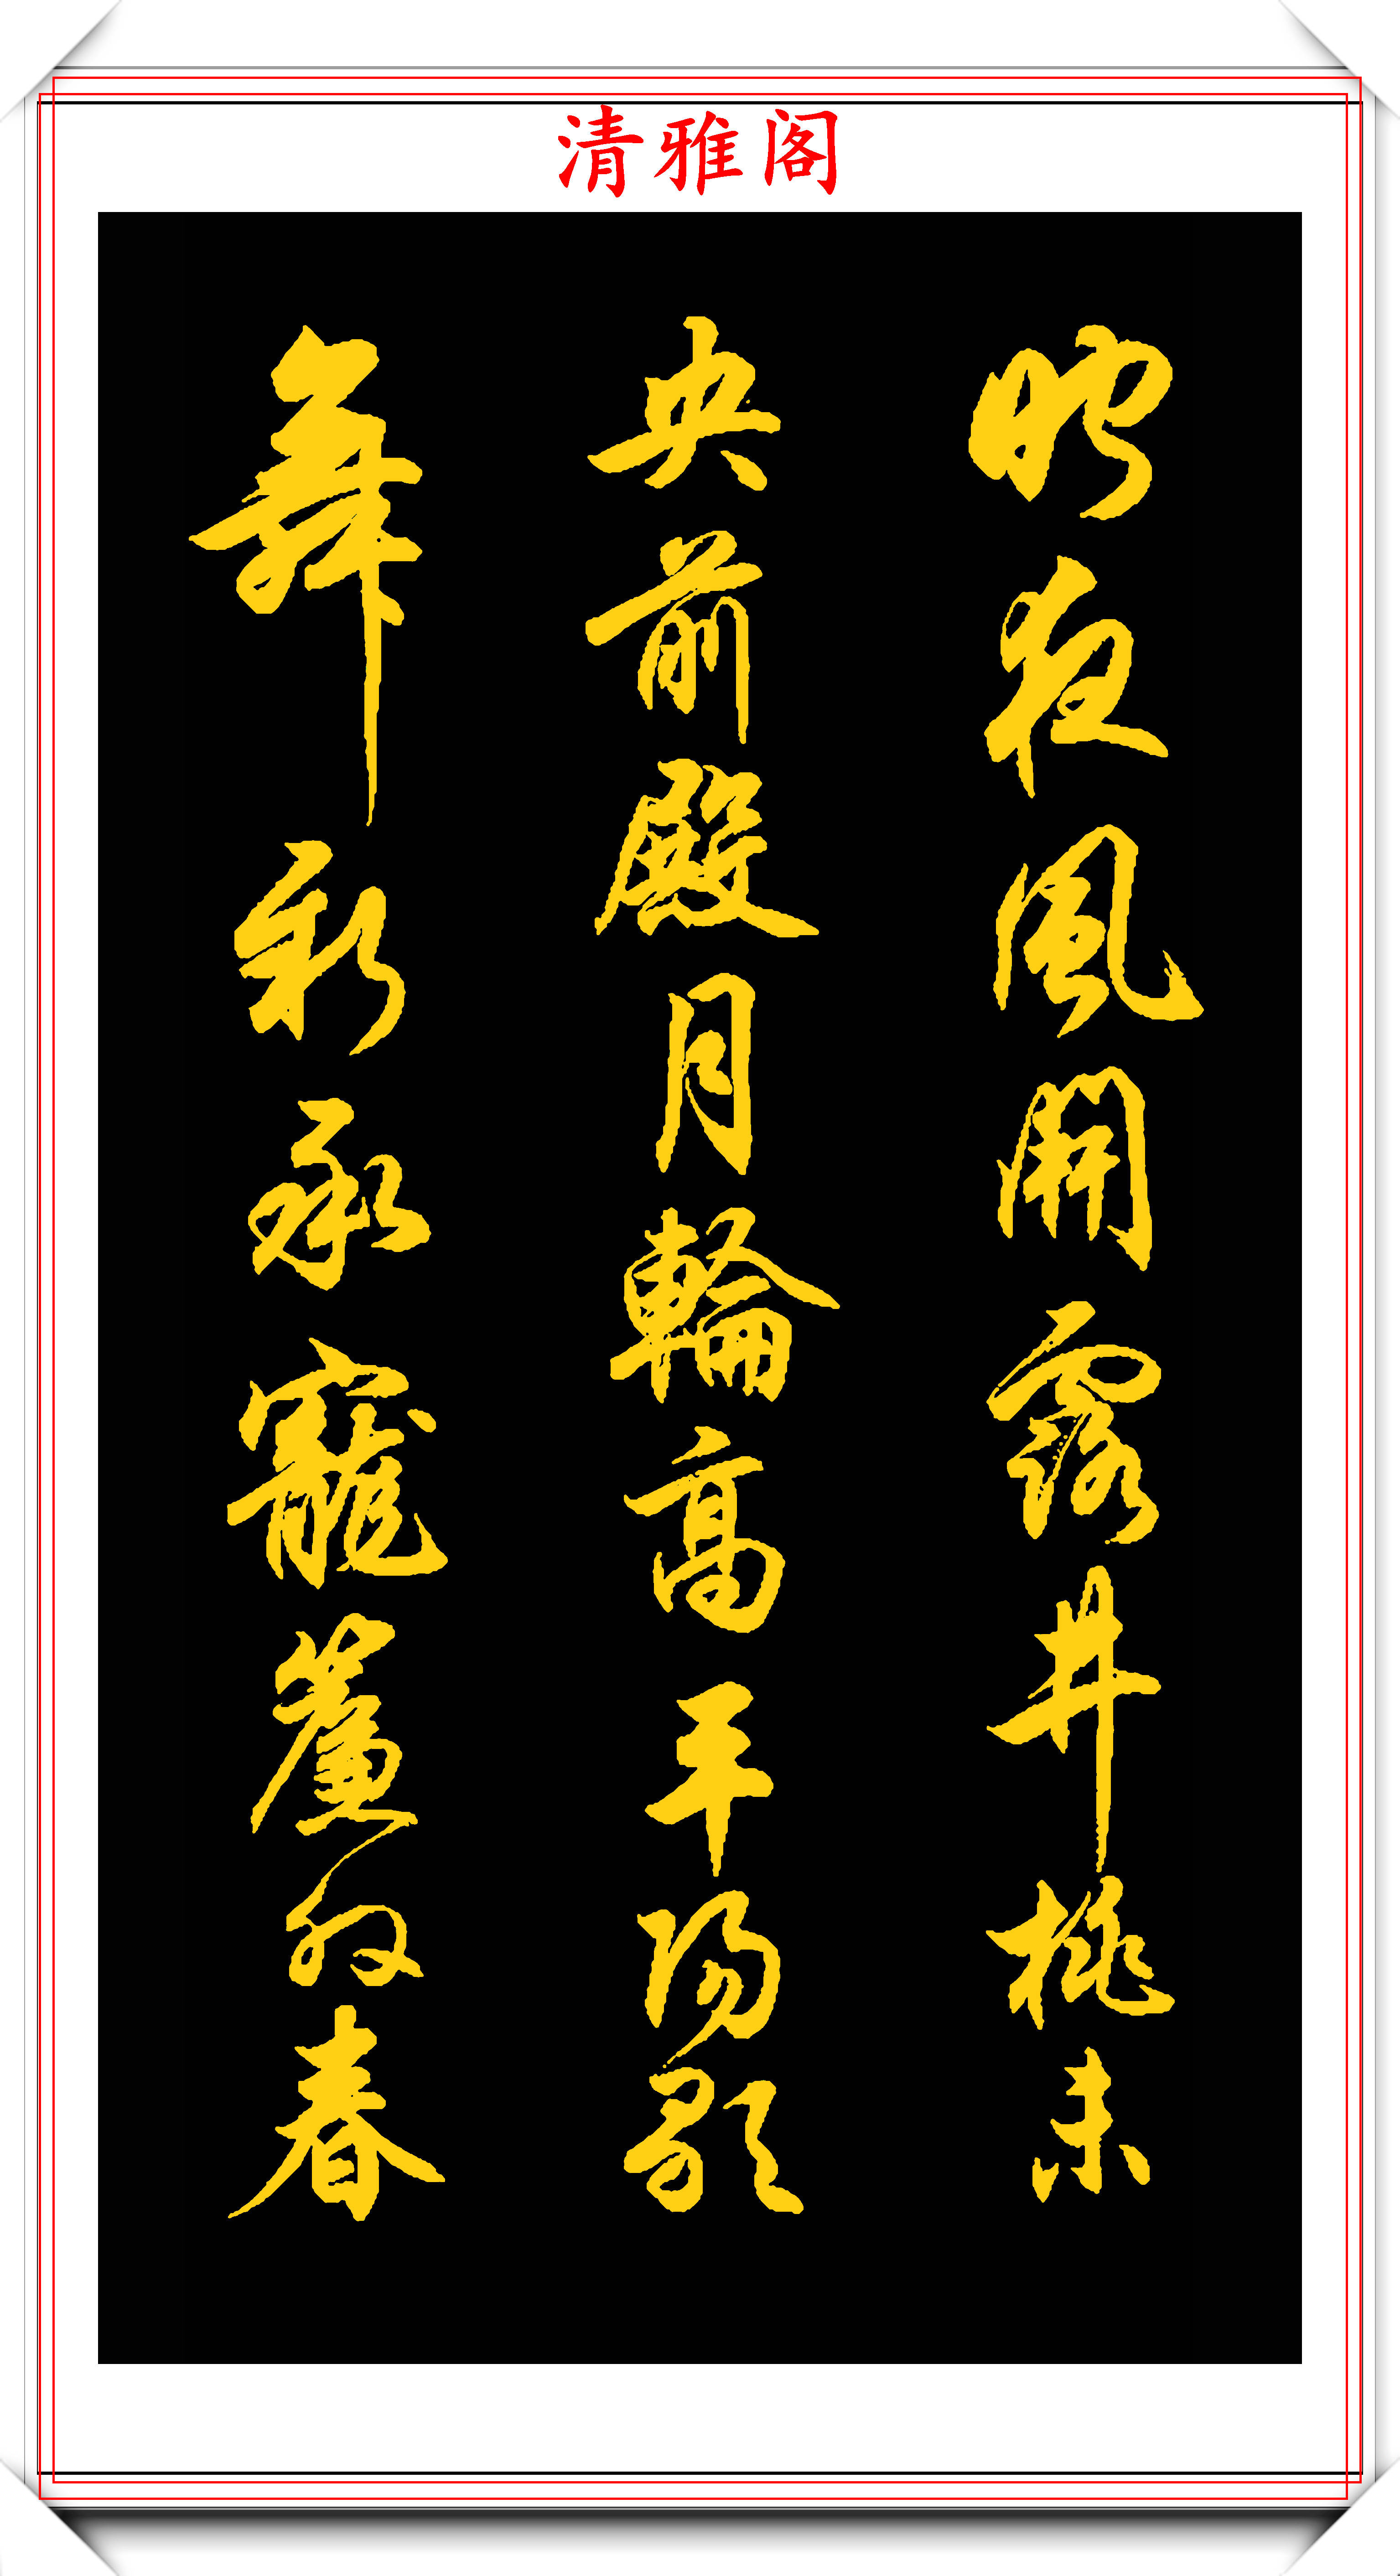 清雅阁
昨夜風開露井桃未
央前殿月輪高平陽歌
舞新承寵簾外春